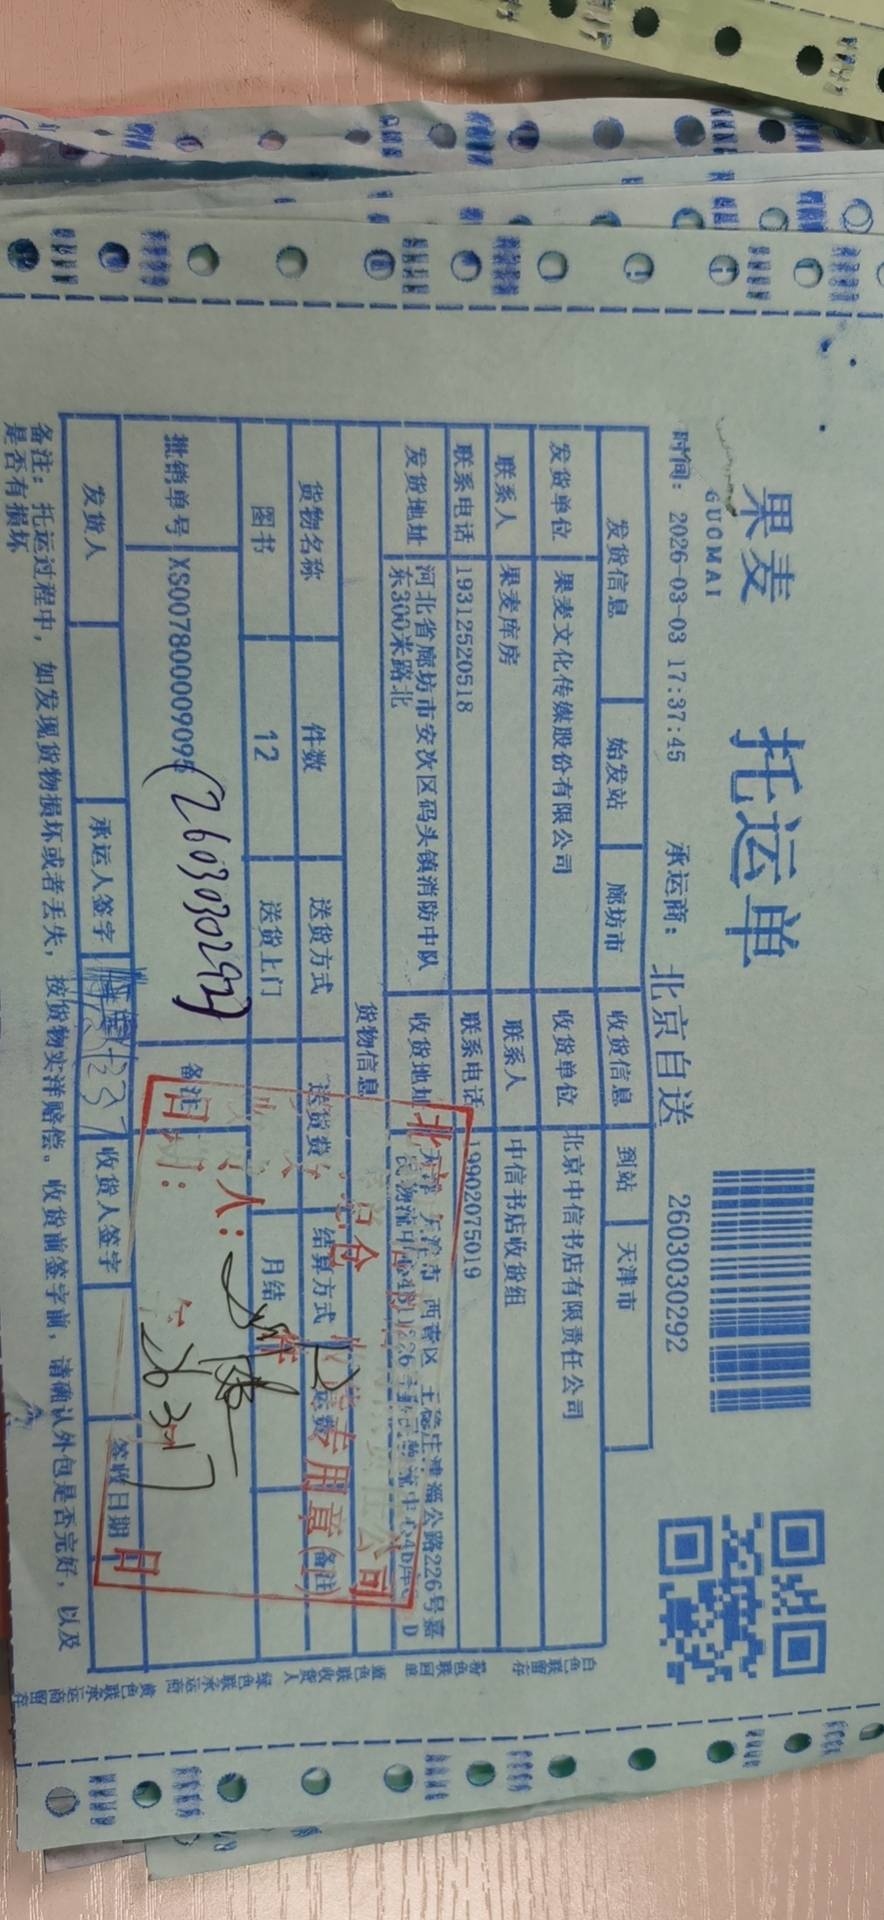 果麦
GUOMAI
托运单
时间：2026-03-03 17:37:45 承运商：北京自送 2603030292
发货信息 始发站 廊坊市 收货信息 到站 天津市
发货单位 果麦文化传媒股份有限公司 收货单位 北京中信书店有限责任公司
联系人 果麦库房 联系人 中信书店收货组
联系电话 19312520518 联系电话 19902075019
发货地址 河北省廊坊市安次区码头镇消防中队
东300米路北
收货地址 天津 天津市 西青区 王稳庄津淄公路226号嘉
民物流中心
货物信息
货物名称 件数 送货方式 送货费 结算方式 运费 备注
图书 12 送货上门 月结
批销单号 XS00780000909 (2603030292) 备注
发货人 承运人签字 收货人签字 签收日期
备注：托运过程中，如发现货物损坏或者丢失，按货物实洋赔偿。收货前签字前，请确认外包是否完好，以及
是否有损坏
白色联留存 粉色联回单 蓝色联收货人 绿色联承运商 黄色联承运商留存
北京
公司
收货专用章
人：
日期：
日